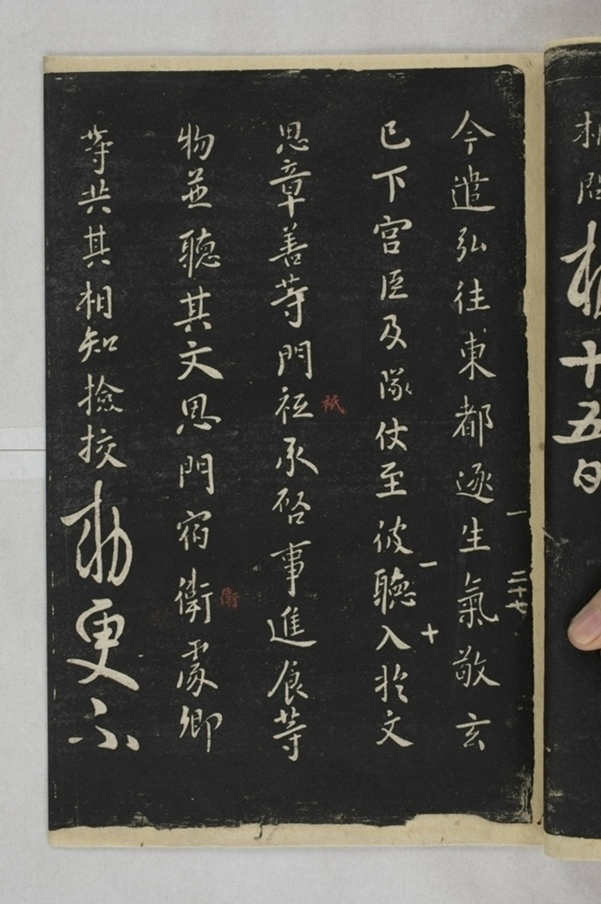 十五日
今遣弘往東都逐生氣敬玄
已下宮臣及隊仗至彼聽入於文
思章善等門祗承啓事進食等
物並聽其文思門宿衛處卿
等共其相知撿挍勅更不
一
二十七
一
十
祇
衛